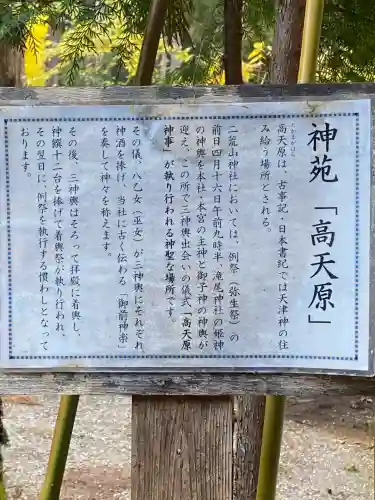 神苑「高天原」
たかまがはら
高天原は、古事記・日本書紀では天津神の住
み給う場所とされる。
二荒山神社においては、例祭（弥生祭）の
前日四月十六日午前九時半、滝尾神社の姫神
の神輿を本社・本宮の主神と御子神の神輿が
迎え、この所で三神輿出会いの儀式「高天原
神事」が執り行われる神聖な場所です。
その儀、八乙女（巫女）が三神輿にそれぞれ
神酒を捧げ、当社に古く伝わる「御前神楽」
を奏して神々を称えます。
その後、三神輿はそろって拝殿に着輿し、
神饌十三台を捧げて着輿祭が執り行われ、
その翌日に、例祭を執行する慣わしとなって
おります。